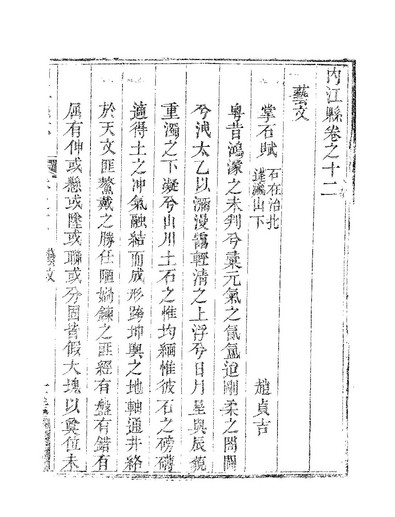 內江縣卷之十二
藝文
掌石賦 石在治北 山下 趙貞吉
粵昔鴻濛之未判兮乗元氣之氤氳迨剛柳之
兮洩太乙以瀰漫靄輕清之上浮兮日月星與辰
重濁之下凝兮山川土石之惟均緬惟彼石之磅礴
適得土之冲氣融結而成形跨坤輿之地軸通井絡
於天文匪鰲戴之勝任隨媧鍊之匪經有盤有錯有
属有伸或懸或墜或聯或分固皆假大塊以奠位未
藝文